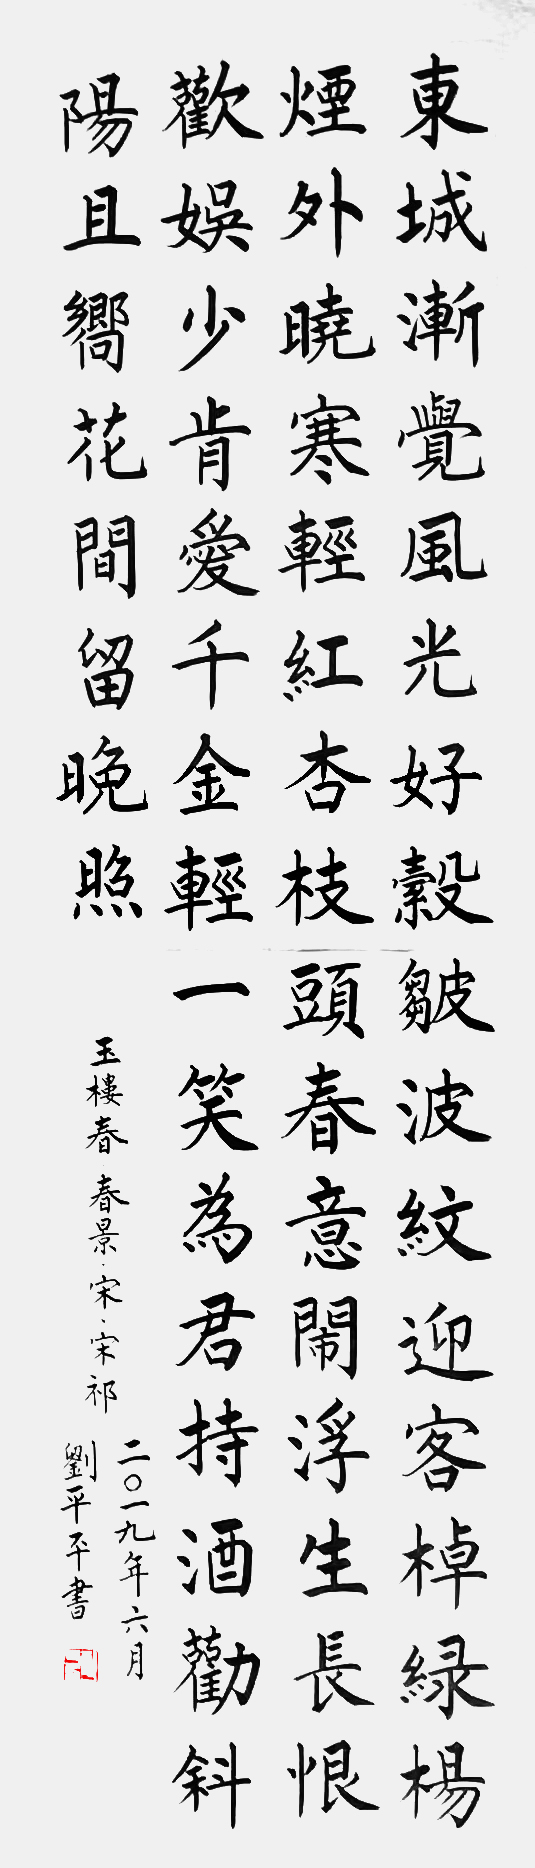 東城漸覺風光好縠皺波紋迎客棹綠楊
煙外曉寒輕紅杏枝頭春意鬧浮生長恨
歡娛少肯愛千金輕一笑為君持酒勸斜
陽且嚮花間留晚照
玉樓春·春景·宋·宋祁
二〇一九年六月
劉平平書